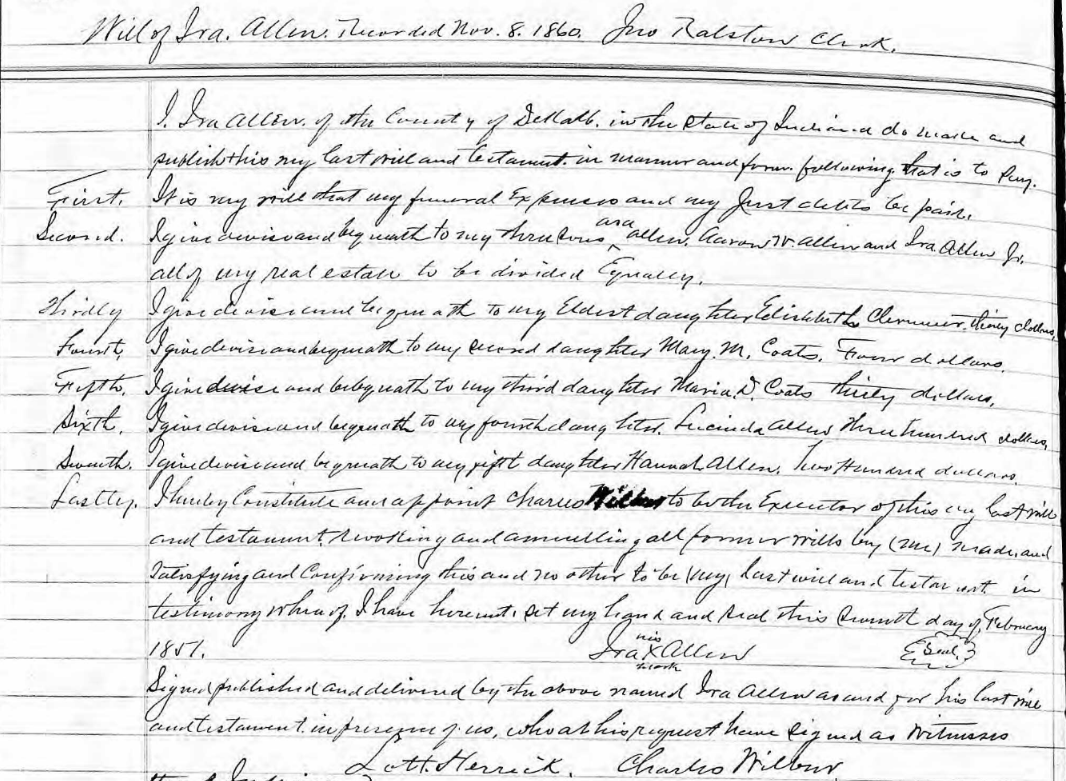 Will of Ira. Allen. Recorded Nov. 8. 1860. Jno Ralston Clerk.
I. Ira Allen. of the County of DeKalb. in the State of Indiana do make and
publish this my last will and testament. in manner and form. following. that is to Say.
First. It is my will that my funeral Expenses and my Just debts be paid.
Second. I give devise and bequeath to my three sons asa Allen. Aaron W. Allen and Ira. Allen Jr.
all of my real estate to be divided Equally.
Thirdly I give devise and bequeath to my Eldest daughter Elisabeth thirty dollars,
Fourth, I give devise and bequeath to my second daughter Mary M. Coats. Four dollars.
Fifth, I give devise and bebqueath to my third daughter Maria D. Coats thirty dollars.
Sixth, I give devise and bequeath to my fourth daughter. Lucinda Allen three hundred dollars,
Seventh. I give devise and bequeath to my fifth daughter Hannah Allen. Two Hundred dollars
Lastly. I hereby Constitute and appoint Charles Wilbur to be the Executor of this my last will
and testament. revoking and annulling all former wills by (me) made, and
Satisfying and Confirming this and no other to be (my) last will and testament in
testimony whereof. I have hereunto set my hand and seal this Seventh day of February
1851. Ira his X mark Allen Seal
Signed published and delivered by the above named Ira Allen as and for his last will
and testament. in presence of us, who at his request have signed as Witnesses
Lott. Herrick. Charles Wilbur